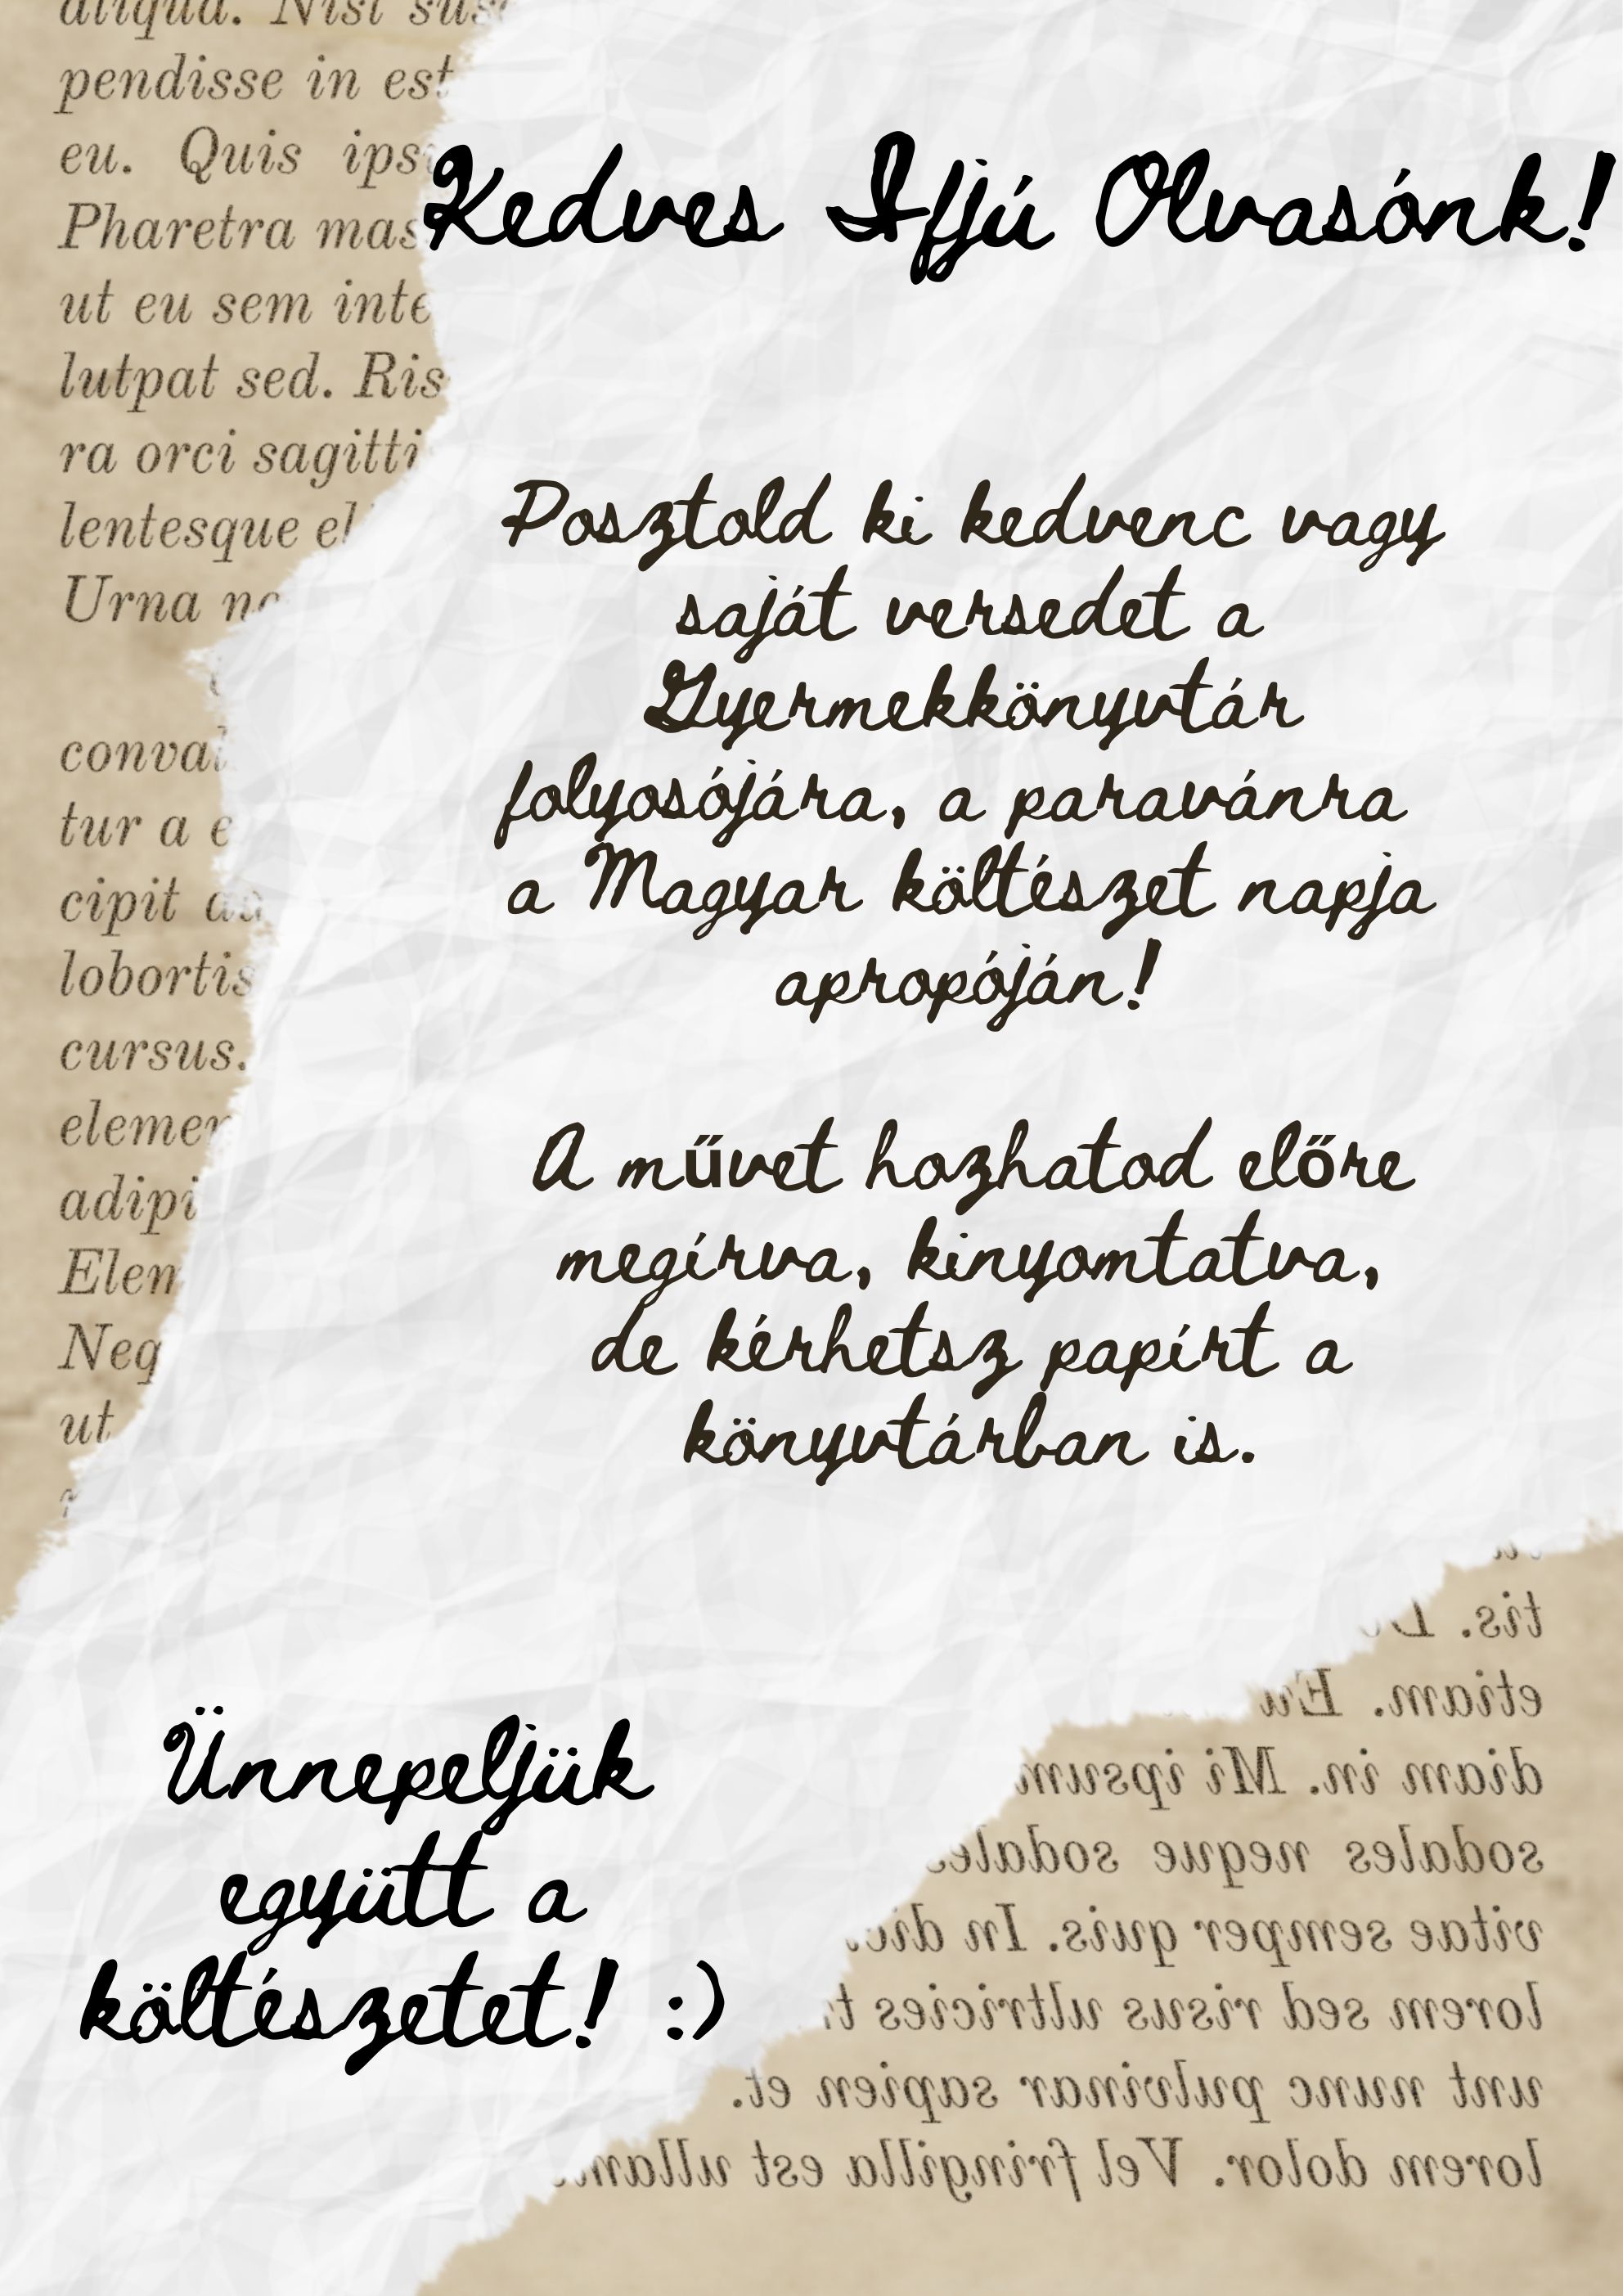 aliqua. Nisi
pendisse in est
eu. Quis
Pharetra
ut eu sem
lutpat sed.
ra orci
lentesque
Urna
tur a
cipit
lobortis
cursus.
ut
Kedves Ifjú Olvasónk!
Posztold ki kedvenc vagy
saját versedet a
Gyermekkönyvtár
folyosójára, a paravánra
a Magyar költészet napja
apropóján!
A művet hozhatod előre
megírva, kinyomtatva,
de kérhetsz papírt a
könyvtárban is.
Ünnepeljük
együtt a
költészetet! :)
tis.
etiam.
diam in. Mi ipsum
sodales neque sodales
vitae semper quis. In
lorem sed risus ultricies
unt nunc pulvinar sapien et.
lorem dolor. Vel fringilla est